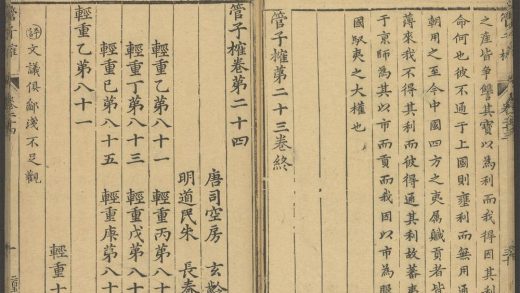 之產皆爭讐其寶以為利而我得因其利
命何也彼不通于上國則壅利而無用通
朝用之至今中國四方之夷屬贓貢者皆
薄來我不得其利而彼得通其利故蕃夷
于京師為其以市而貢而我因以市為服
國馭夷之大權也
管子榷第二十三卷終
管子榷卷第二十四
唐司空房 玄齡
明道民朱 長春
輕重乙第八十一 輕重丙第八十
輕重丁第八十三 輕重戊第八十
輕重己第八十五 輕重庚第八十
輕重乙第八十一 輕重十
評文議俱鄙淺不足觀